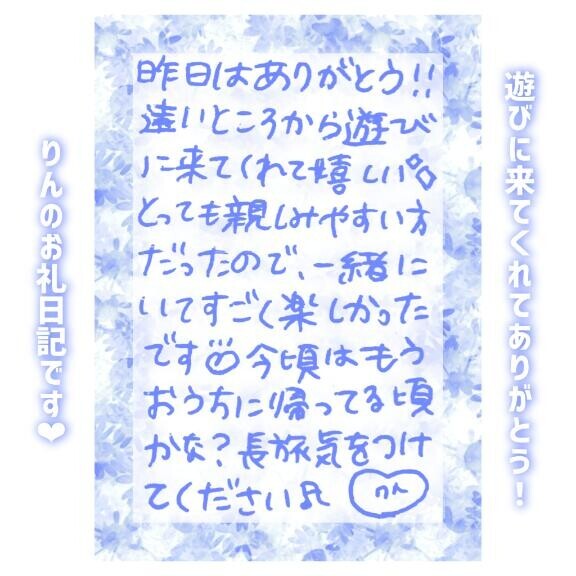 遊びに来てくれてありがとう!
昨日はありがとう!!
遠いところから遊び
に来てくれて嬉しい
とっても親しみやすい方
だったので、一緒に
いてすごく楽しかった
です 今頃はもう
おうちに帰ってる頃
かな?長旅気をつけ
てください♬
りん
りんのお礼日記です❤